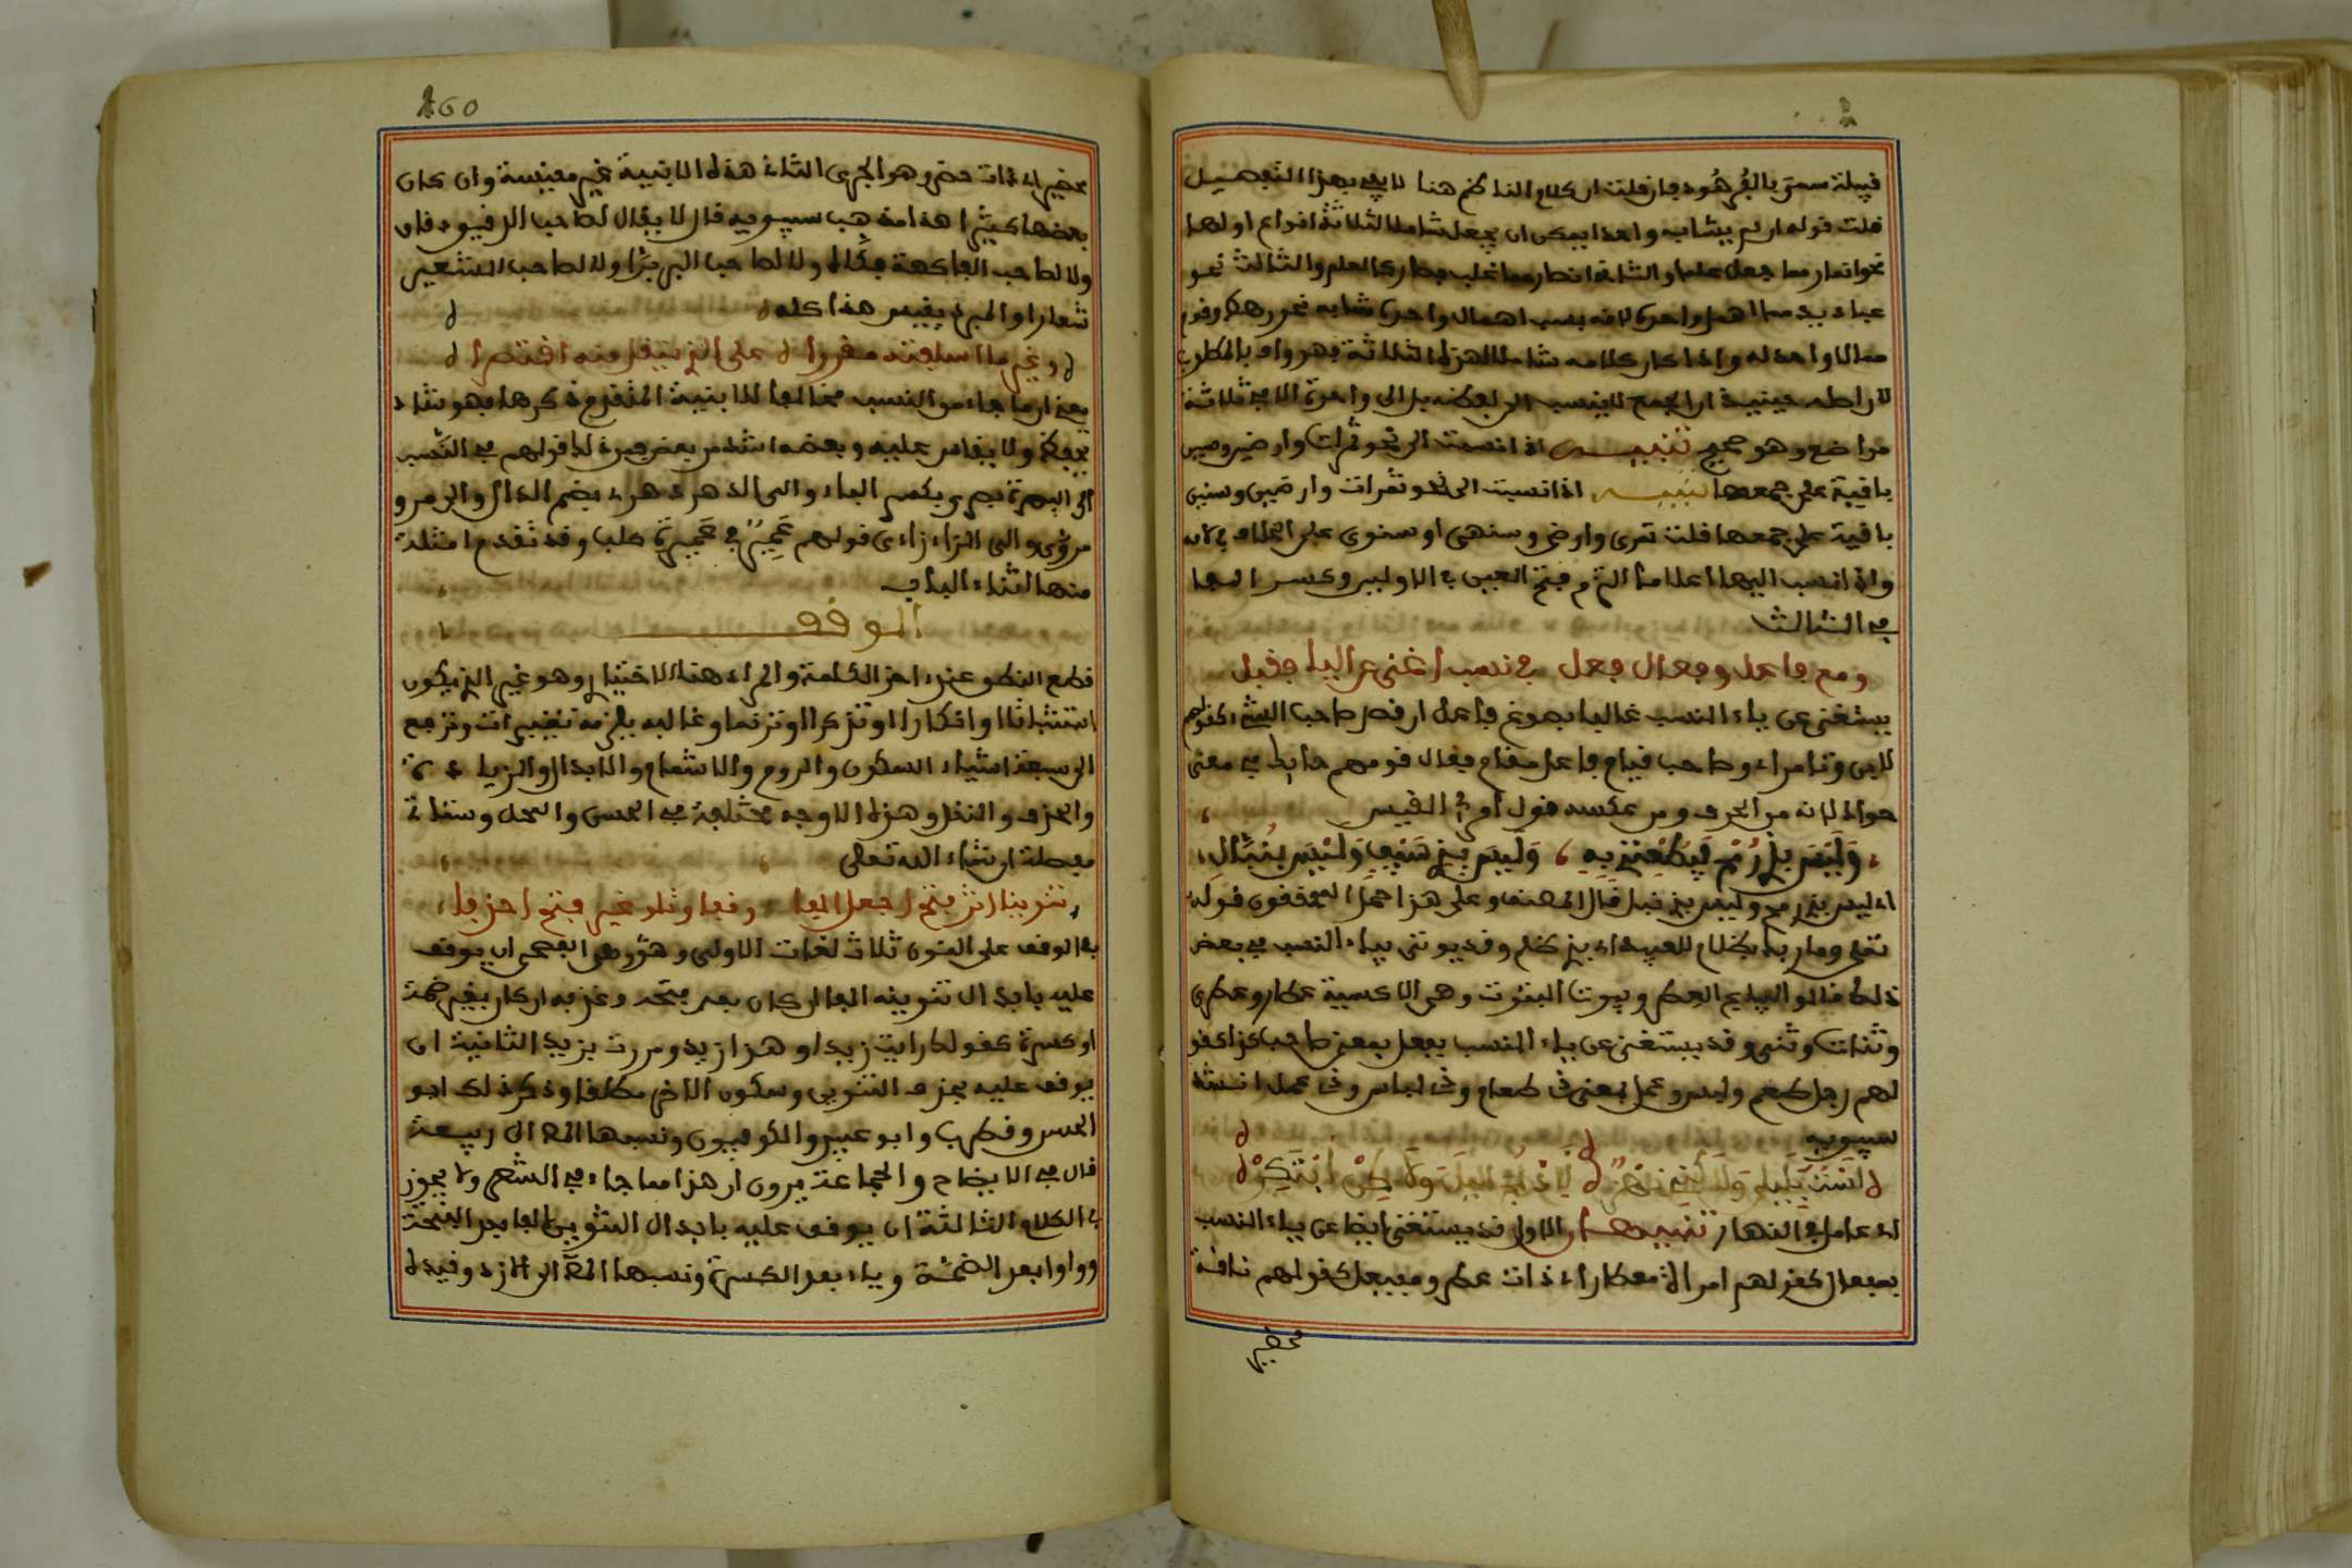 قبيلة سمي بالفرهود فان قلت ان كلام الناظم هنا لا يفي بهذا التفصيل
قلت قوله ان لم يشابه واحدا يمكن ان يجعل شاملا لثلاثة انواع اولها
نحو انمار مما جعل علما والثاني انصار مما غلب فصار كالعلم والثالث نحو
عباديد مما اهمل واحده لانه بسبب اهمال واحده شابه نحو رهط وقوم
مما لا واحد له واذا كان كلامه شاملا لهذه الثلاثة فهو واف بالمطلوب
باقية على جمعها تنبيه اذا نسبت الى نحو تمرات وارضين وسنين
باقية على جمعها قلت تمري وارضي وسنهي او سنوي على الخلاف في لامه
واذا نسب اليها اعلاما التزم فتح العين في الاولين وكسر الفا
في الثالث
ومع فاعل وفعال فعل في نسب اغنى عن اليا فقبل
يستغنى عن ياء النسب غالبا بصوغ فاعل ان قصد صاحب الشيء كقولهم
لابن وتامر اي صاحب
حوالا لانه من الحرف ومن عكسه قول امرئ القيس
وليس بذي رمح فيطعنني به وليس بذي سيف وليس بنبال
اي ليس بذي رمح وليس بذي نبل قال المصنف وعلى هذا حمل المحققون قوله
تعلى وما ربك بظلام للعبيد اي بذي ظلم وقد يوتى بياء النسب في بعض
ذلك قالوا لبياع العطر وبيوت البتوت وهي الاكسية عطار وعطري
وبتات وبتي وقد يستغنى عن ياء النسب بفعل بمعنى صاحب كذا كقو
لهم رجل طعم ولبس وعمل بمعنى ذي طعام وذي لباس وذي عمل انشد
سيبويه
لست بليلي ولكني نهر لا ادلج الليل ولكن ابتكر
اي عامل في النهار تنبيهان الاول قد يستغنى ايضا عن ياء النسب
بمفعال كقولهم امراة معطار اي ذات عطر ومفعيل كقولهم ناقة
محضير
160
محضير اي ذات حضر وهو الجري الثاني هذه الابنية غير مقيسة وان كان
بعضها كثيرا هذا مذهب سيبويه قال لا يقال لصاحب الدقيق دقاق
ولا لصاحب الفاكهة فكاه ولا لصاحب البر برار ولا لصاحب الشعير
شعارا والمبرد يقيس هذا كله
وغير ما اسلفته مقررا على الذي ينقل منه اقتصرا
يعني ان ما جاء من النسب مخالفا للابنية المتقدم ذكرها فهو شاذ
يحفظ ولا يقاس عليه وبعضه اشذ من بعض فمن ذلك قولهم في النسب
الى البصرة بصري بكسر الباء والى الدهر دهري بضم الدال والى مرو
مروزي والى الري رازي
منها اثناء الباب
الوقف
قطع النطق عند اخر الكلمة والمراد هنا الاختياري وهو غير الذي يكون
استثباتا او انكارا او تذكرا او ترنما وغالبه يلزمه تغييرات وترجع
الى سبعة اشياء السكون والروم والاشمام والابدال والزيادة
والحذف والنقل وهذه الاوجه مختلفة في الحسن والمحل وستاتي
مفصلة ان شاء الله تعالى
تنوينا اثر فتح اجعل الفا وقفا وتلو غير فتح احذفا
في الوقف على المنون ثلاث لغات الاولى وهي الفصحى ان يوقف
عليه بابدال تنوينه الفا ان كان بعد فتحة وبحذفه ان كان بعد ضمة
او كسرة كقولك رايت زيدا وهذا زيد ومررت بزيد الثانية ان
يوقف عليه بحذف التنوين وسكون الاخر مطلقا وذكر ذلك ابو
الحسن وقطرب وابو عبيد والكوفيون ونسبها الى ربيعة
قال في الايضاح والجماعة يرون ان هذا مما جاء في الشعر ولا يجوز
في الكلام الثالثة ان يوقف عليه بابدال التنوين الفا بعد الفتحة
وواوا بعد الضمة وياء بعد الكسرة ونسبها الى الازد وقيد